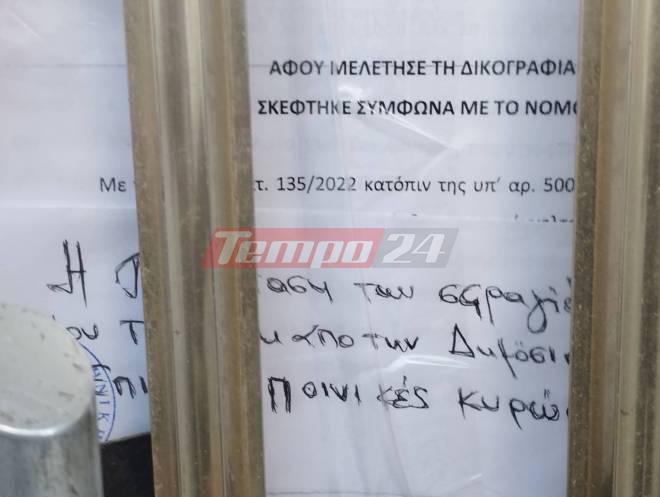 ΑΦΟΥ ΜΕΛΕΤΗΣΕ ΤΗ ΔΙΚΟΓΡΑΦΙΑ
ΣΚΕΦΤΗΚΕ ΣΥΜΦΩΝΑ ΜΕ ΤΟ ΝΟΜΟ
Με τ. 135/2022 κατόπιν της υπ' αρ. 500
Tempo24
Η αση των σφραγίδ
ου Τ κ απο την Δημόσι
επι Ποινικές κυρώ
ΙΝΙΚ